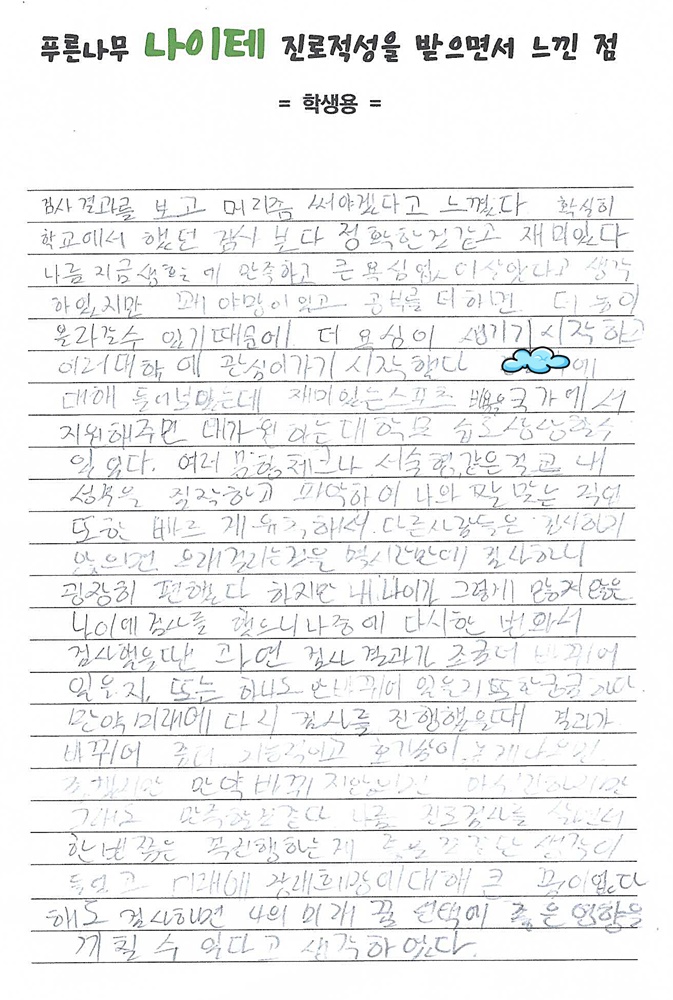 푸른나무 나이테 진로적성을 받으면서 느낀 점
= 학생용 =
검사결과를 보고 머리좀 써야겠다고 느꼈다 확실히
학교에서 했던 검사 보다 정확한것같고 재미있다
나름 지금생활에 만족하고 큰 욕심없이살았다고 생각
하였지만 꽤 야망이 있고 공부를 더하면 더 높이
올라갈수 있기때문에 더 욕심이 생기기 시작하고
여러대학에 관심이가기 시작했다 에
대해 들어보았는데 재미있는스포츠 배움을국가에서
지원해주면 내가 원하는대학도 상상할수
있었다. 여러 문항체크나 서술형같은걸로 내
성격을 직작하고 파악하여 나와 딱맞는 직업
또한 빠르게 해서 다른사람들은 검사하기
않으면 오래걸리는것을 몇시간만에 검사하니
굉장히 편했다 하지만 내 나이가 그렇게 많지않은
나이에 검사를 했으니 나중에 다시한 번 와서
검사했을땐 과연 검사결과가 조금더 바뀌어
있을지, 또는 하나도 안바뀌어 있을지 또한궁금하다.
만약 미래에 다시 검사를 진행했을때 결과가
바뀌어 좀더
만약 바뀌지않았으면
그래도 만족할것같다 나름 진로검사를 하면서
한번쯤은 꼭진행하는게 생각이
들었고 미래에 장래희망에대해 큰 꿈이없다
해도 검사하면 나의 미래 꿈 선택에 좋은영향을
끼칠 수 있다고 생각하였다.